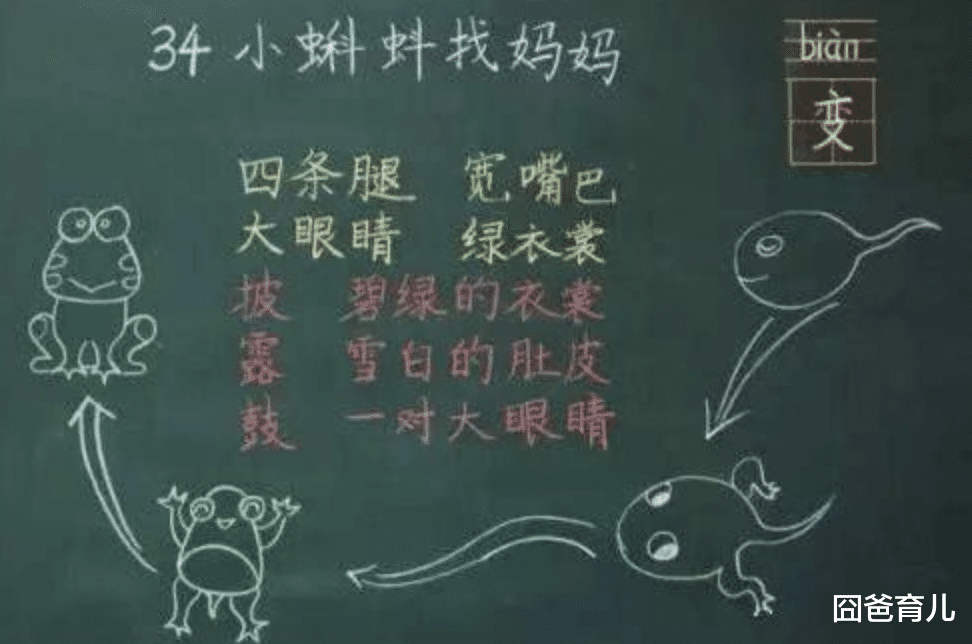 34 小蝌蚪找妈妈
biàn
变
四条腿 宽嘴巴
大眼睛 绿衣裳
披 碧绿的衣裳
露 雪白的肚皮
鼓 一对大眼睛
囧爸育儿